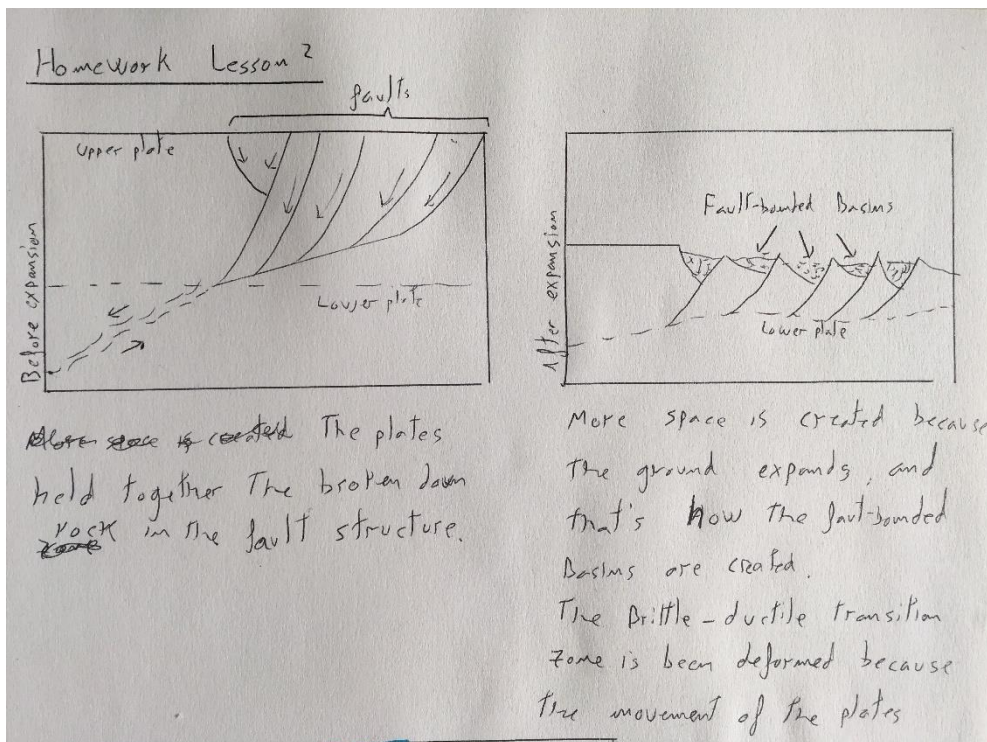 Homework Lesson 2
faults
Upper plate
Before expansion
Lower plate
The plates
held together The broken down
rock in the fault structure.
Fault-bounded Basins
After expansion
Lower plate
More space is created because
The ground expands, and
that's how the faut-bounded
Basins are created.
The Brittle-ductile transition
zone is been deformed because
the movement of the plates